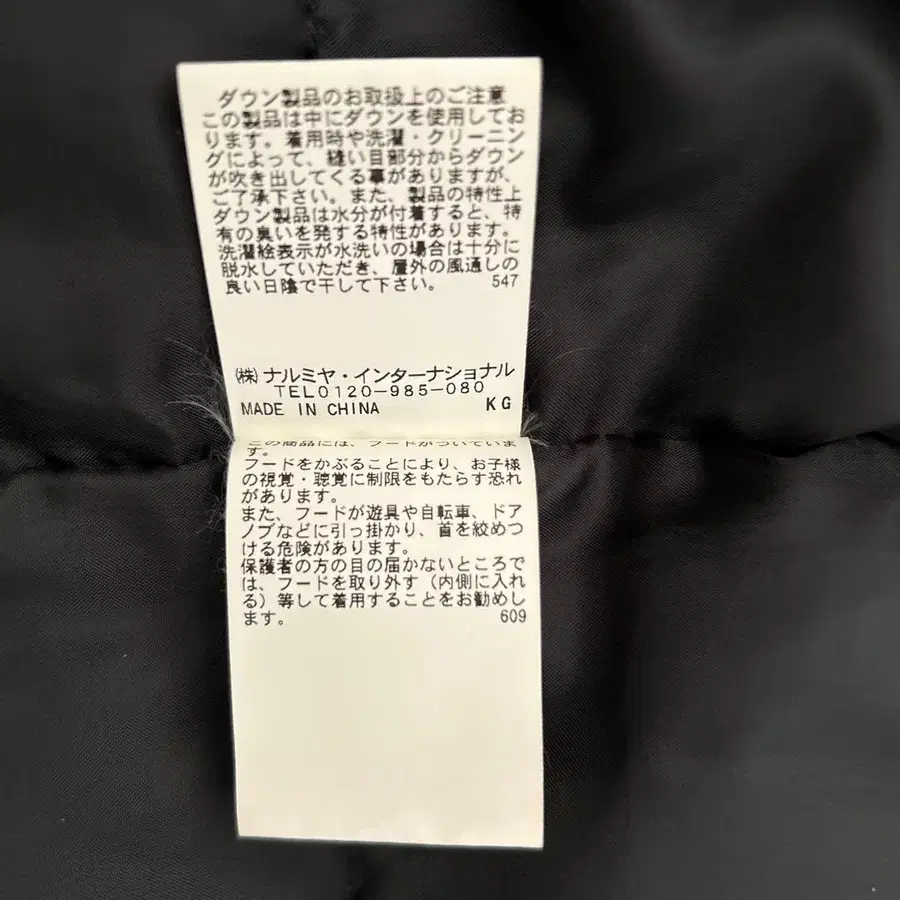 ダウン製品のお取扱上のご注意
この製品は中にダウンを使用してお
ります。着用時や洗濯・クリーニン
グによって、縫い目部分からダウン
が吹き出してくる事がありますが、
ご了承下さい。また、製品の特性上
ダウン製品は水分が付着すると、特
有の臭いを発する特性があります。
洗濯絵表示が水洗いの場合は十分に
脱水していただき、屋外の風通しの
良い日陰で干して下さい。 547
㈱ナルミヤ・インターナショナル
TEL0120-985-080
MADE IN CHINA KG
この商品には、フードがついていま
す。
フードをかぶることにより、お子様
の視覚・聴覚に制限をもたらす恐れ
があります。
また、フードが遊具や自転車、ドア
ノブなどに引っ掛かり、首を絞めつ
ける危険があります。
保護者の方の目の届かないところで
は、フードを取り外す（内側に入れ
る）等して着用することをお勧めし
ます。 609